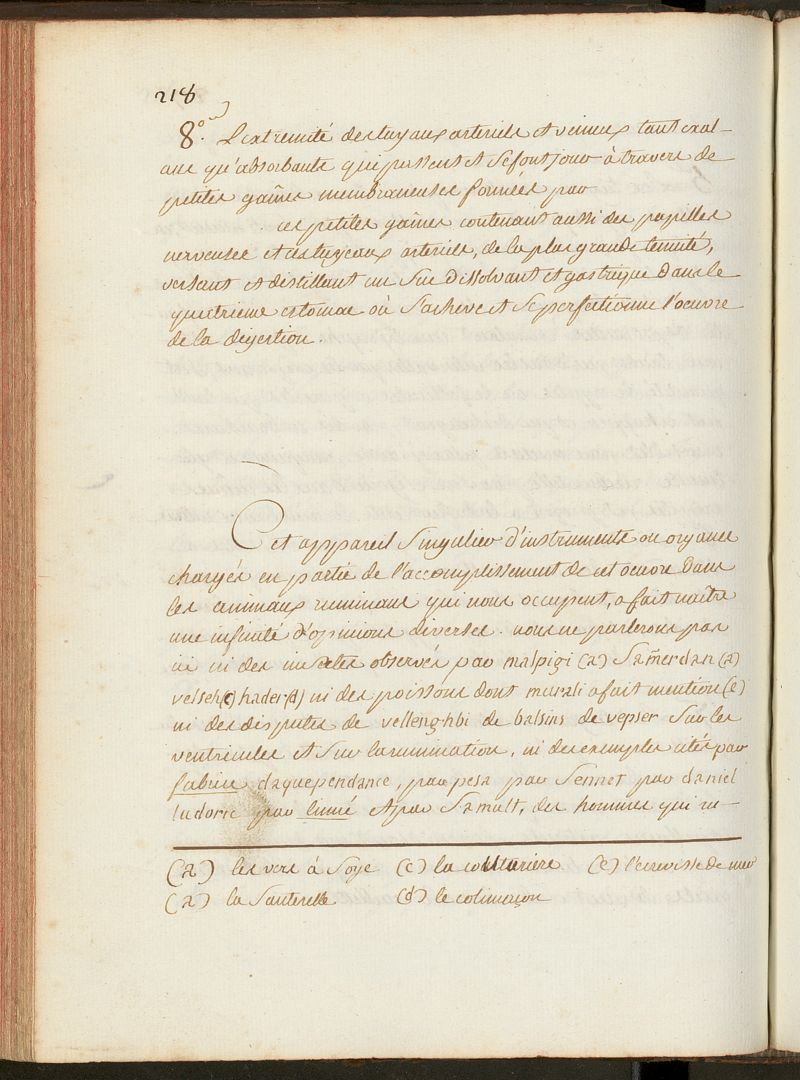 218
8.° L'extremité des tuyaux arteriels et veineux tant exal-
ans qu'absorbants qui passent et se font jour à travers de
petites gaînes membraneuses formées par
ces petites gaînes contenant aussi des papilles
nerveuses et des tuyeaux arteriels, de la plus grande tenuité,
versant et distillant un Suc dissolvant et gastrique dans le
quatrieme estomac où S'acheve et Se perfectionne l'oeuvre
de la digestion.
Cet appareil Singulier d'instruments ou organes
chargés en partie de l'accomplissement de cet oeuvre dans
les animaux ruminans qui nous occupent, a fait naître
une infinité d'opinions diverses. nous ne parlerons pas
ici ni des insectes observés par malpigi (a) Samerdan (a)
velseh (c) hader (d) ni des poissons dont murali a fait mention (e)
ni des disputes de vellenghbi de balsins de vepser Sur les
ventricules et Sur la rumination, ni des exemples cités par
fabrice daquependance, par pesa par Sennet par daniel
ludoric par linné et par Samult, des hommes qui ru-
(a) les vers à Soye (c) la couturiere (e) l'ecrevisse de mer
(a) la Sauterelle (d) le colimaçon